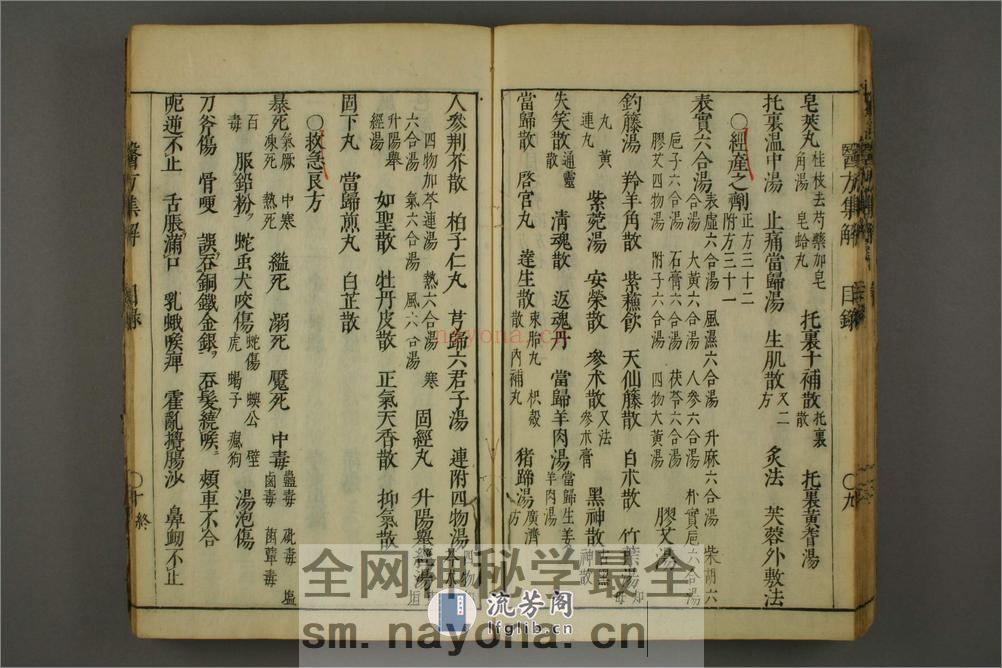 醫方集解 目錄 〇九
皂莢丸 桂枝去芍藥加皂角湯 皂蛤丸 托裏十補散 托裏散 托裏黃耆湯
托裏溫中湯 止痛當歸湯 生肌散 又二方 灸法 芙蓉外敷法
〇經產之劑 正方三十二 附方三十一
表實六合湯 表虛六合湯 風濕六合湯 升麻六合湯 柴胡六合湯 大黃六合湯 人參六合湯 朴實六合湯 梔子六合湯 石膏六合湯 茯苓六合湯 膠艾四物湯 附子六合湯 四物大黃湯 膠艾湯
鈎藤湯 羚羊角散 紫蘓飲 天仙藤散 白朮散 竹葉湯 知母丸 黃連丸
紫菀湯 安榮散 參朮散 又法 參朮膏 黑神散 黑神散
失笑散 通靈散 淸魂散 返魂丹 當歸羊肉湯 當歸生姜羊肉湯
當歸散 啓宮丸 達生散 束胎丸 枳殼散 內補丸 猪蹄湯 廣濟方
人參荆芥散 柏子仁丸 芎歸六君子湯 連附四物湯 四物
四物加芩連湯 熱六合湯 寒六合湯 氣六合湯 風六合湯 固經丸 升陽舉經湯
升陽舉經湯 如聖散 牡丹皮散 正氣天香散 抑氣散
固下丸 當歸煎丸 白芷散
〇救急良方
暴死 氣厥 中寒 凍死 熱死 縊死 溺死 魘死 中毒 蠱毒 砒毒 鹵毒 菌蕈毒 鹽
百毒 服鉛粉 蛇虫犬咬傷 蛇傷 蜈公 壁虎 蝎子 瘋狗 湯泡傷
刀斧傷 骨哽 誤吞銅鐵金銀 吞髮繞喉 頰車不合
呃逆不止 舌脹滿口 乳蛾喉痺 霍亂攪腸沙 鼻衂不止
醫方集解 目錄 〇十終
nayona.com
全网神秘学最全
流芳阁
lfglib.cn
sm.nayona.cn